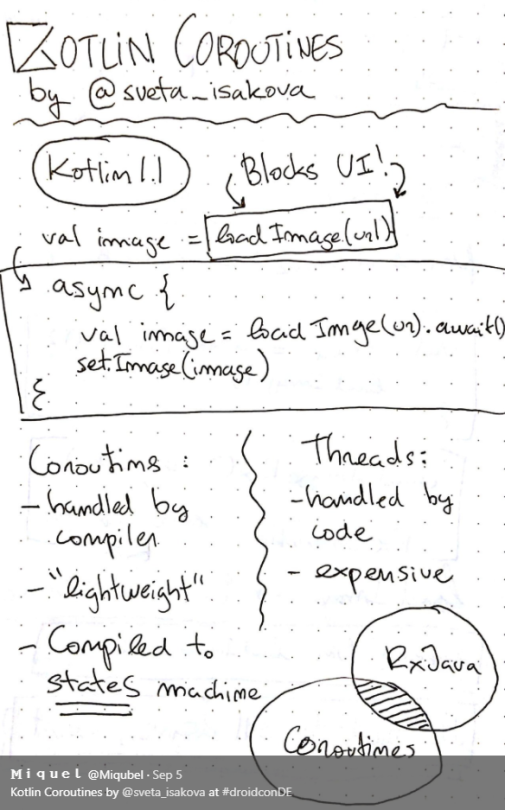 KOTLIN COROUTINES
by @sveta_isakova
Kotlin 1.1
Blocks UI!
val image = loadImage(url)
async {
val image = loadImge(url).await()
setImage(image)
}
Coroutins :
- handled by
compiler
- "lightweight"
- Compiled to
states machine
Threads:
- handled by
code
- expensive
RxJava
Coroutines
Miquel @Miqubel · Sep 5
Kotlin Coroutines by @sveta_isakova at #droidconDE